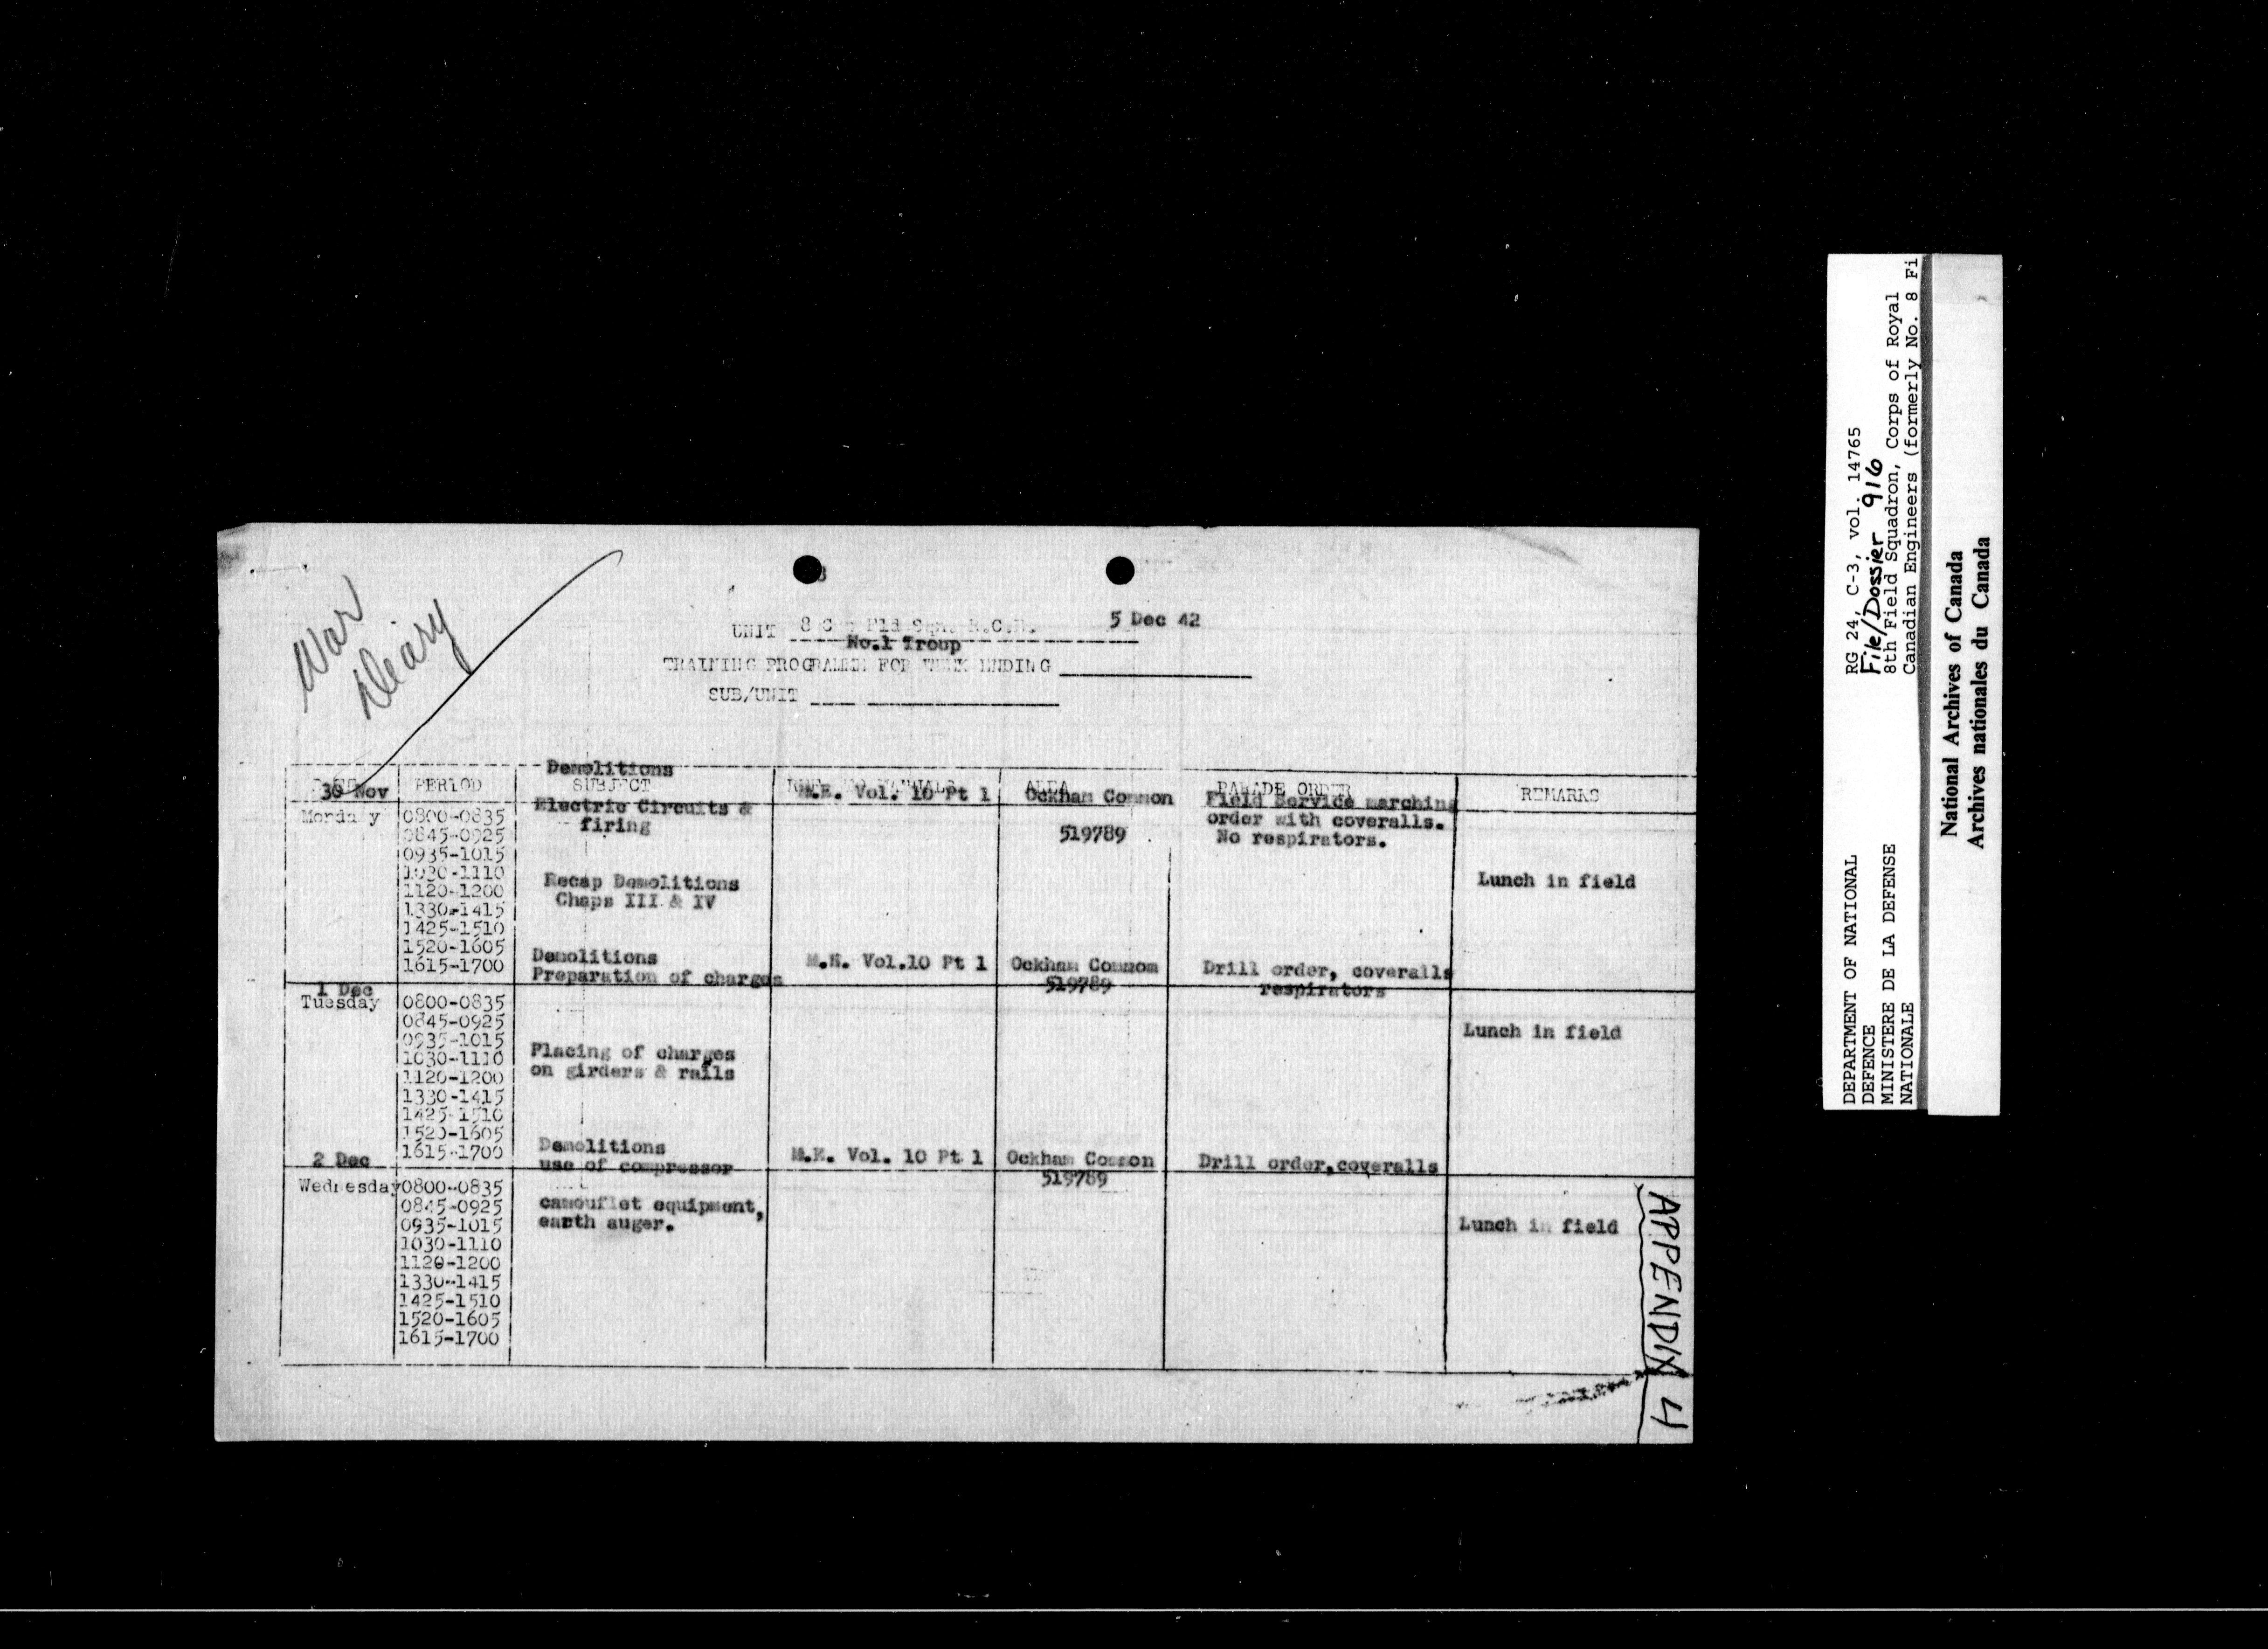 War
Diary
UNIT 8 Fld Sqn. R.C.E. 5 Dec 42
No.1 Troop
TRAINING PROGRAMME FOR WEEK ENDING
SUB/UNIT
Demolitions
PERIOD SUBJECT AREA PARADE ORDER REMARKS
30 Nov M.E. Vol. 10 Pt 1 Ockham Common Field Service marching
Electric Circuits &
Monday 0800-0835 firing order with coveralls.
0845-0925 519789 No respirators.
0935-1015
1030-1110 Recap Demolitions Lunch in field
1120-1200 Chaps III & IV
1330-1415
1425-1510
1520-1605 Demolitions M.E. Vol.10 Pt 1 Ockham Common Drill order, coveralls
1615-1700 Preparation of charges 519789 respirators
1 Dec
Tuesday 0800-0835
0845-0925 Lunch in field
0935-1015
1030-1110 Placing of charges
1120-1200 on girders & rails
1330-1415
1425-1510
1520-1605
1615-1700 Demolitions M.E. Vol. 10 Pt 1 Ockham Common Drill order,coveralls
2 Dec use of compressor 519789
Wednesday 0800-0835
0845-0925 camouflet equipment,
0935-1015 earth auger. Lunch in field
1030-1110
1120-1200
1330-1415
1425-1510
1520-1605
1615-1700
APPENDIX 4
DEPARTMENT OF NATIONAL
DEFENCE
MINISTERE DE LA DEFENSE
NATIONALE
RG 24, C-3, vol. 14765
File/Dossier 916
8th Field Squadron, Corps of Royal
Canadian Engineers (formerly No. 8 Fi
National Archives of Canada
Archives nationales du Canada